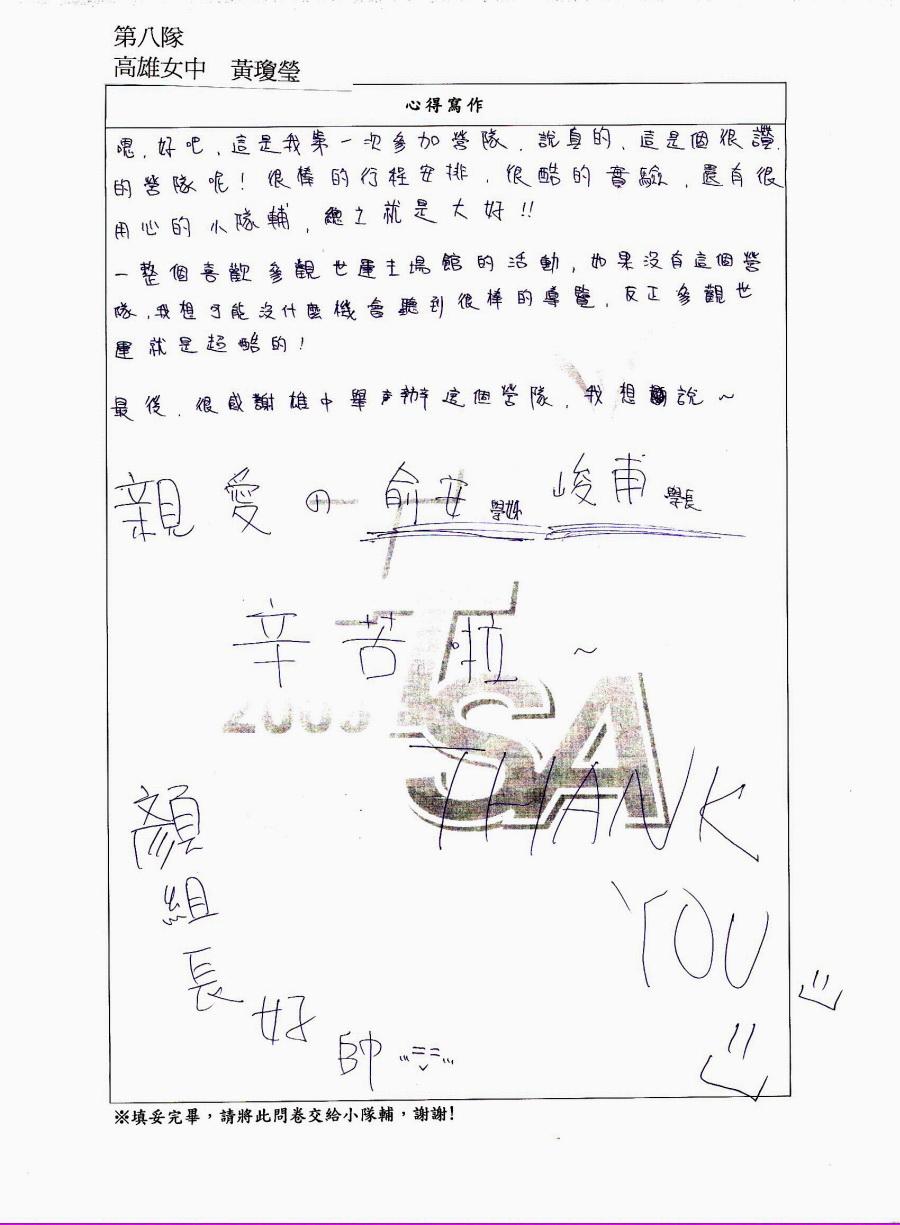 第八隊
高雄女中　黃瓊瑩
心得寫作
嗯，好吧，這是我第一次參加營隊，說真的，這是個很讚
的營隊呢！很棒的行程安排，很酷的實驗，還有很
用心的小隊輔，總之就是大好!!
一整個喜歡參觀世運主場館的活動，如果沒有這個營
隊，我想可能沒什麼機會聽到很棒的導覽，反正參觀世
運就是超酷的！
最後，很感謝雄中舉辦這個營隊，我想說～
親愛の俞安學姊 峻甫學長
辛苦啦～
TSA
THANK
YOU
顏組長好帥
※填妥完畢，請將此問卷交給小隊輔，謝謝!